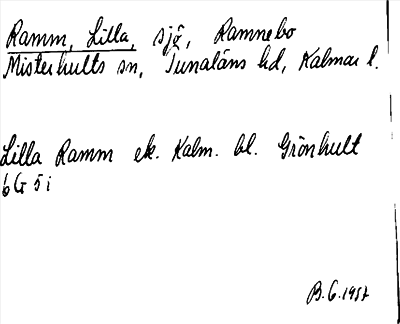 Ramm, Lilla, sjö, Ramnebo
Misterhults sn, Tunaläns hd, Kalmar l.
Lilla Ramm ek. Kalm. bl. Grönhult
6G 5i
B.G.1957